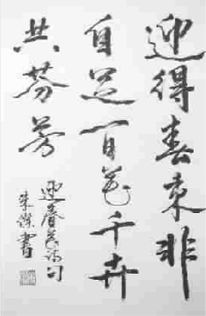 迎得春来非
自足百花千卉
共芬芳
迎春花诗句
朱傑書